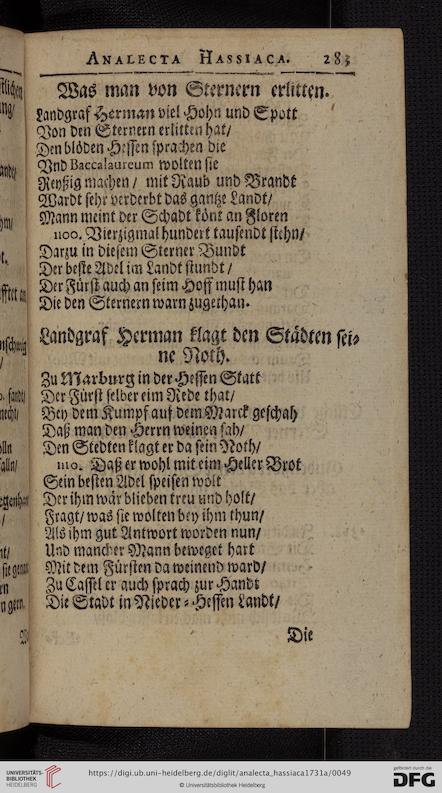 ANALECTA HASSIACA. 283
Was man von Sternern erlitten.
Landgraf Herman viel Hohn und Spott
Von den Sternern erlitten hat/
Den blöden Hessen sprachen die
Vnd Baccalaureum wolten sie
Reyßig machen/ mit Raub und Brandt
Wardt sehr verderbt das gantze Landt/
Mann meint der Schadt könt an Floren
1100. Vierzigmal hundert tausendt stehn/
Darzu in diesem Sterner Bundt
Der beste Adel im Landt stundt/
Der Fürst auch an seim Hoff must han
Die den Sternern warn zugethan.
Landgraf Herman klagt den Städten sei=
ne Noth.
Zu Marburg in der Hessen Statt
Der Fürst selber eim Rede that/
Bey dem Kumpf auf dem Marck geschah
Daß man den Herrn weinen sah/
Den Stedten klagt er da sein Noth/
1110. Daß er wohl mit eim Heller Brot
Sein besten Adel speisen wolt
Der ihm wär blieben treu und holt/
Fragt/ was sie wolten bey ihm thun/
Als ihm gut Antwort worden nun/
Und mancher Mann beweget hart
Mit dem Fürsten da weinend ward/
Zu Cassel er auch sprach zur Handt
Die Stadt in Nieder=Hessen Landt/
Die
UNIVERSITÄTS-
BIBLIOTHEK
HEIDELBERG
https://digi.ub.uni-heidelberg.de/diglit/analecta_hassiaca1731a/0049
© Universitätsbibliothek Heidelberg
gefördert durch die
DFG